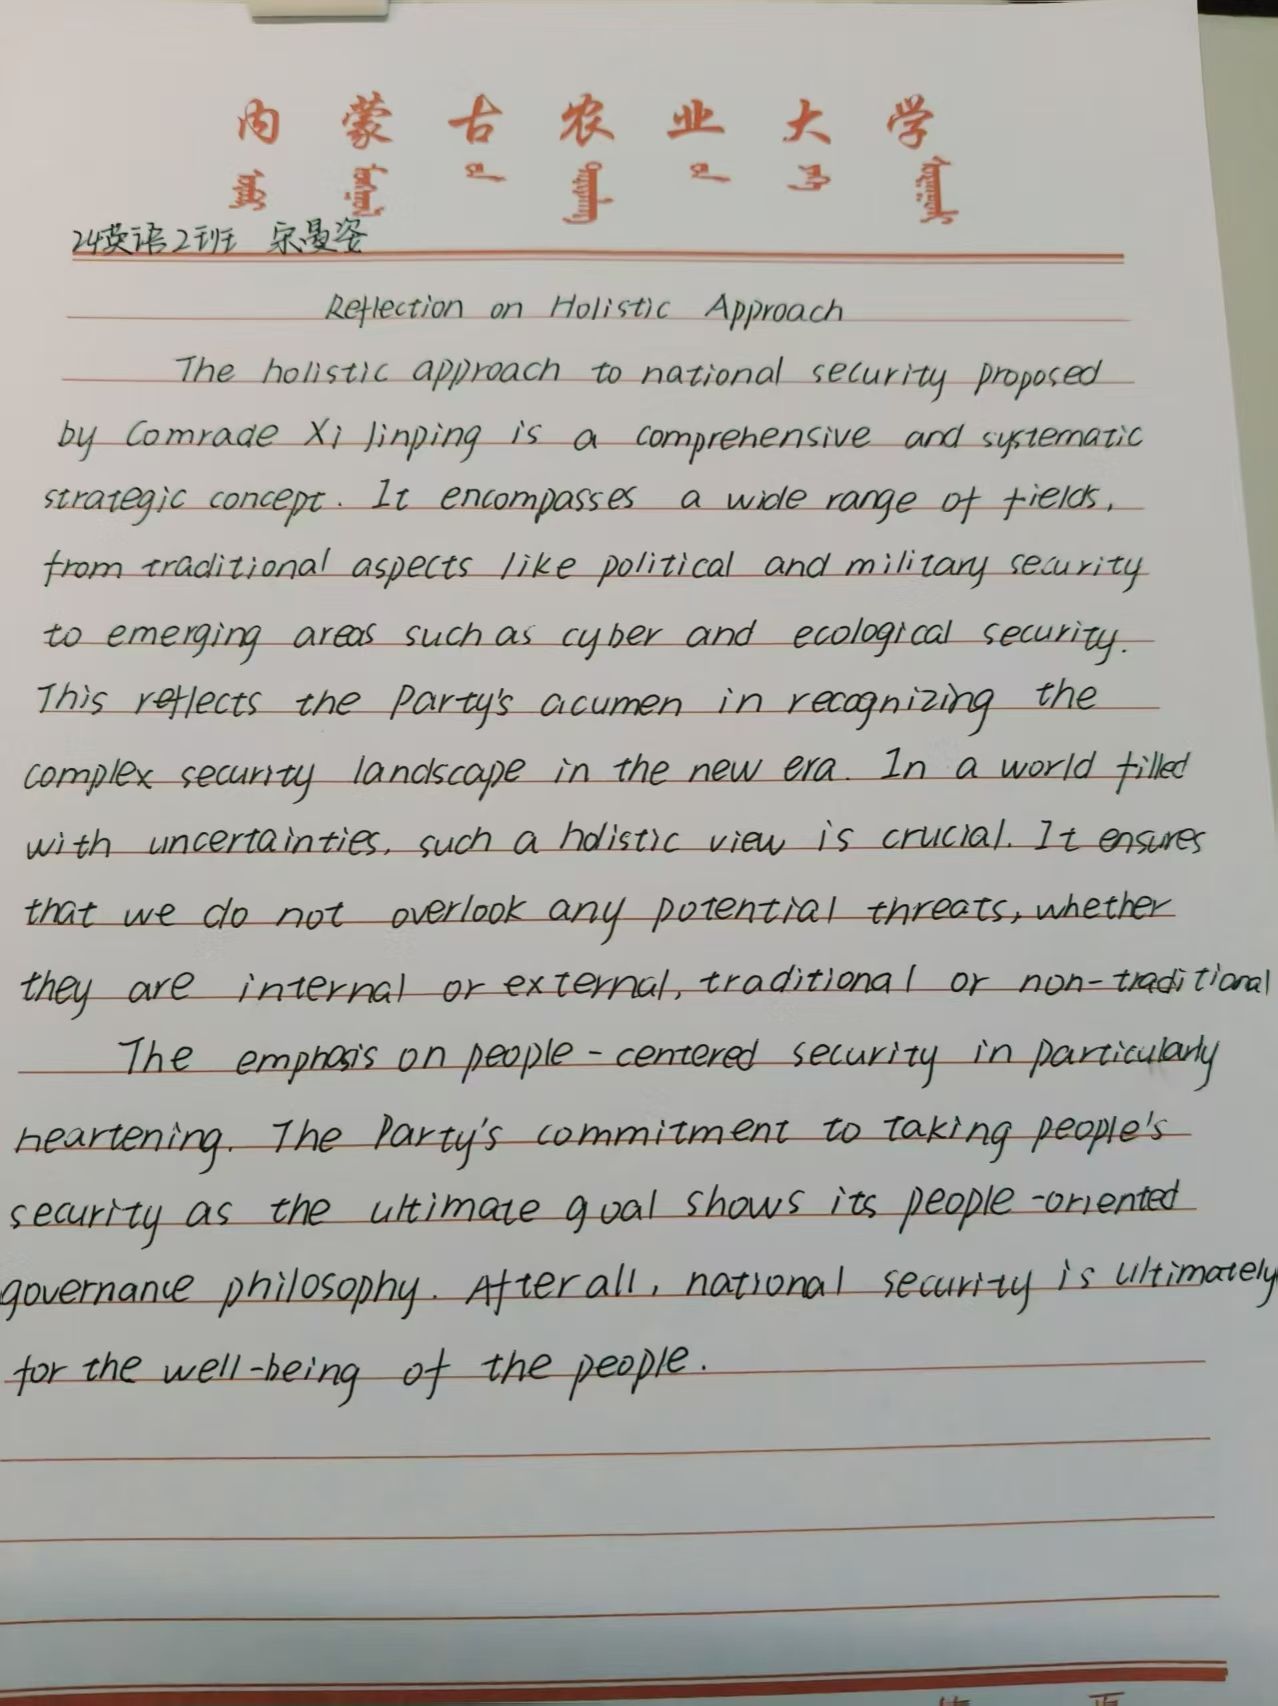 内蒙古农业大学
24英语2班 宋曼姿
Reflection on Holistic Approach
The holistic approach to national security proposed
by Comrade Xi Jinping is a comprehensive and systematic
strategic concept. It encompasses a wide range of fields,
from traditional aspects like political and military security
to emerging areas such as cyber and ecological security.
This reflects the Party's acumen in recognizing the
complex security landscape in the new era. In a world filled
with uncertainties, such a holistic view is crucial. It ensures
that we do not overlook any potential threats, whether
they are internal or external, traditional or non-traditional
The emphasis on people-centered security in particularly
heartening. The Party's commitment to taking people's
security as the ultimate goal shows its people-oriented
governance philosophy. After all, national security is ultimately
for the well-being of the people.